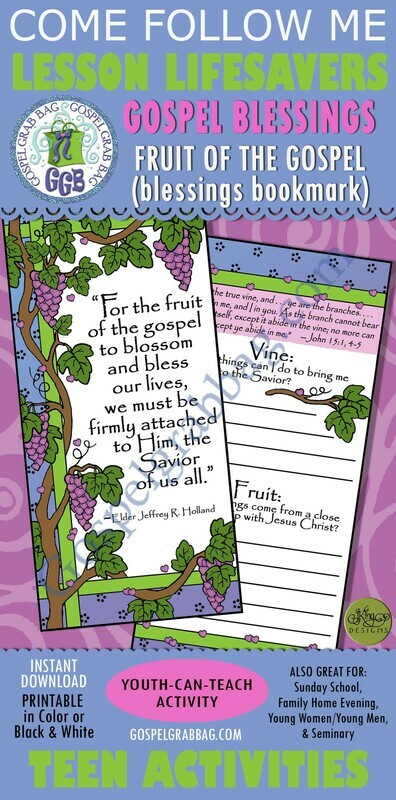 COME FOLLOW ME
LESSON LIFESAVERS
GOSPEL GRAB BAG GOSPEL GRAB BAG
GGB
GOSPEL BLESSINGS
FRUIT OF THE GOSPEL
(blessings bookmark)
"For the fruit
of the gospel
to blossom
and bless
our lives,
we must be
firmly attached
to Him, the
Savior
of us all."
~Elder Jeffrey R. Holland
the true vine, and . . . ye are the branches. . . .
me, and I in you. As the branch cannot bear
itself, except it abide in the vine; no more can
cept ye abide in me." ~John 15:1, 4-5
Vine:
things can I do to bring me
to the Savior?
Fruit:
ngs come from a close
p with Jesus Christ?
DESIGNS
INSTANT
DOWNLOAD
PRINTABLE
in Color or
Black & White
YOUTH-CAN-TEACH
ACTIVITY
GOSPELGRABBAG.COM
ALSO GREAT FOR:
Sunday School,
Family Home Evening,
Young Women/Young Men,
& Seminary
TEEN ACTIVITIES